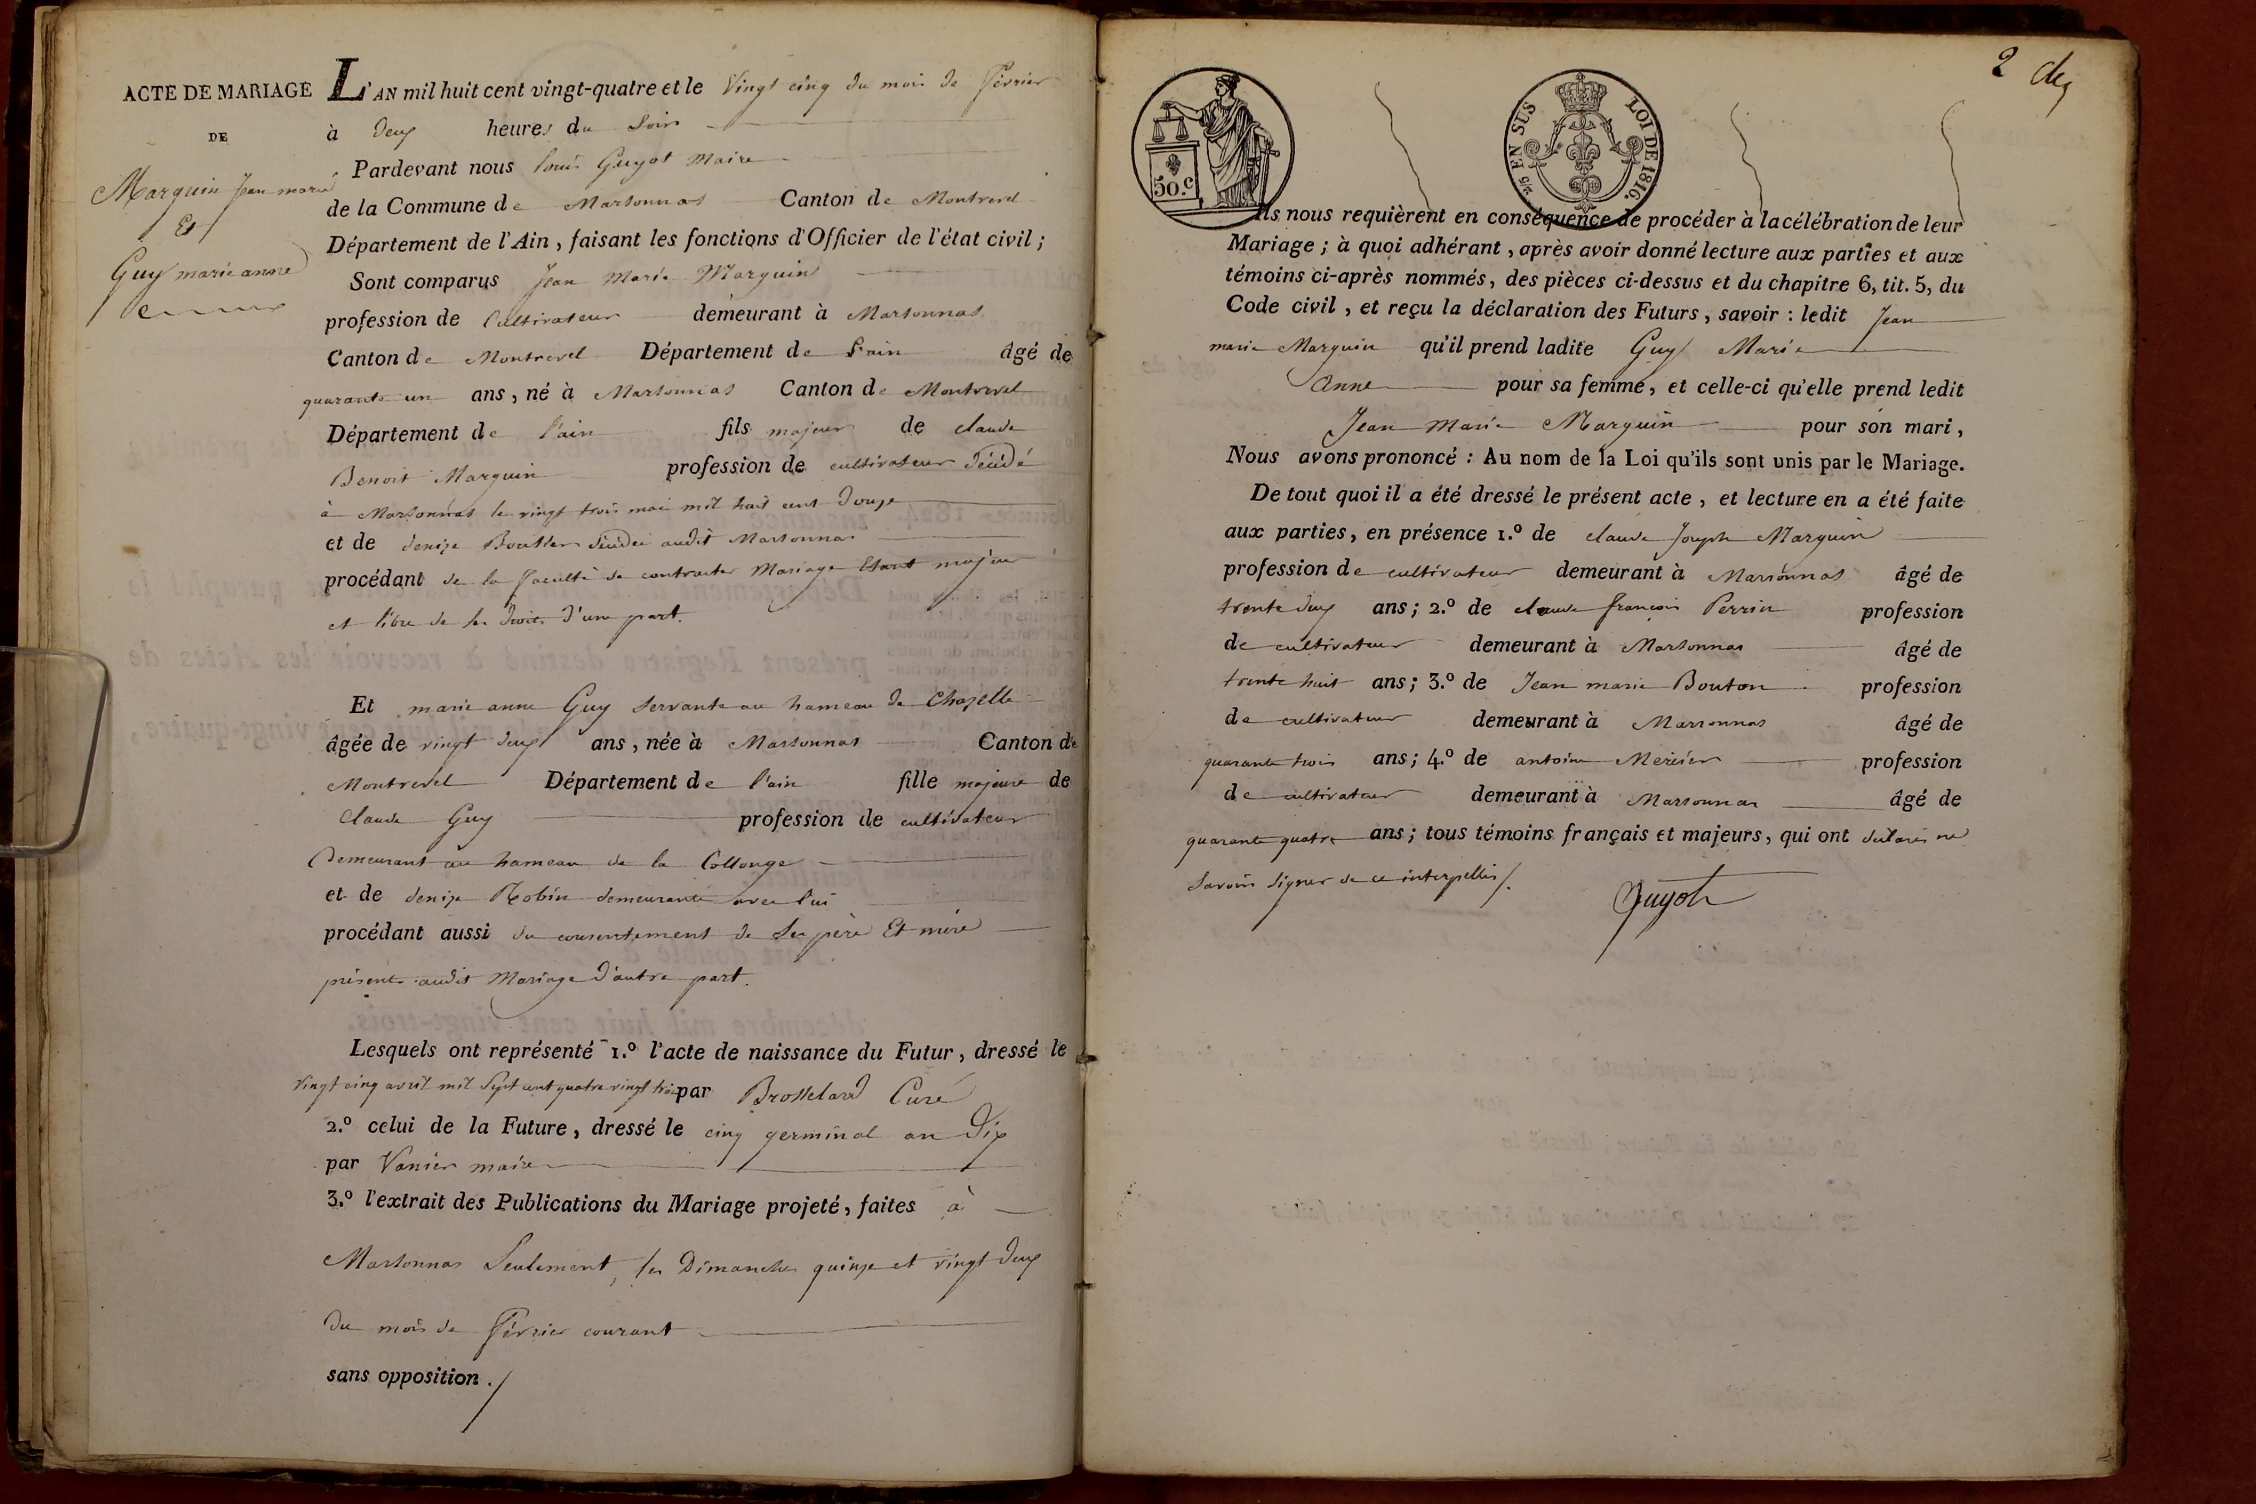 ACTE DE MARIAGE
DE
Marguin Jean marie
Et
Guy marie anne
L'AN mil huit cent vingt-quatre et le Vingt cinq du mois de Février
à deux heures du Soir
Pardevant nous Louis Guyot Maire
de la Commune de Marsonnas Canton de Montrevel
Département de l'Ain, faisant les fonctions d'Officier de l'état civil;
Sont comparus Jean Marie Marguin
profession de Cultivateur demeurant à Marsonnas
Canton de Montrevel Département de L'ain âgé de
quarante un ans, né à Marsonnas Canton de Montrevel
Département de l'ain fils majeur de claude
Benoit Marguin profession de cultivateur décédé
à Marsonnas le vingt trois mai mil huit cent douze
et de denize décédée audit Marsonnas
procédant de la faculté de contracter Mariage Etant majeur
et libre de ses droits d'une part.
Et marie anne Guy Servante au hameau de Chazelle
âgée de vingt deux ans, née à Marsonnas Canton de
Montrevel Département de l'ain fille majeure de
Claude Guy profession de cultivateur
Demeurant au hameau de la Collonge
et de denize Robin demeurante avec lui
procédant aussi du consentement de Ses père Et mère
présents audit Mariage d'autre part.
Lesquels ont représenté 1.º l'acte de naissance du Futur, dressé le
vingt cinq avril mil Sept cent quatre vingt trois par Brosselard Curé
2.º celui de la Future, dressé le cinq germinal an Dix
par Vanier maire
3.º l'extrait des Publications du Mariage projeté, faites à
Marsonnas Seulement, les Dimanches quinze et vingt deux
du mois de Février courant
sans opposition ./
2 deux
50.c
5/10 EN SUS
LOI DE 1816.
Ils nous requièrent en conséquence de procéder à la célébration de leur
Mariage; à quoi adhérant, après avoir donné lecture aux parties et aux
témoins ci-après nommés, des pièces ci-dessus et du chapitre 6, tit. 5, du
Code civil, et reçu la déclaration des Futurs, savoir: ledit Jean
marie Marguin qu'il prend ladite Guy Marie
Anne pour sa femme, et celle-ci qu'elle prend ledit
Jean Marie Marguin pour son mari,
Nous avons prononcé: Au nom de la Loi qu'ils sont unis par le Mariage.
De tout quoi il a été dressé le présent acte, et lecture en a été faite
aux parties, en présence 1.º de claude Joseph Marguin
profession de cultivateur demeurant à Marsonnas âgé de
trente deux ans; 2.º de claude françois Perrin profession
de cultivateur demeurant à Marsonnas âgé de
trente huit ans; 3.º de Jean marie Bouton profession
de cultivateur demeurant à Marsonnas âgé de
quarante trois ans; 4.º de antoine Mercier profession
de cultivateur demeurant à Marsonnas âgé de
quarante quatre ans; tous témoins français et majeurs, qui ont déclarés ne
Savoir signer de ce interpellés /.
Guyot